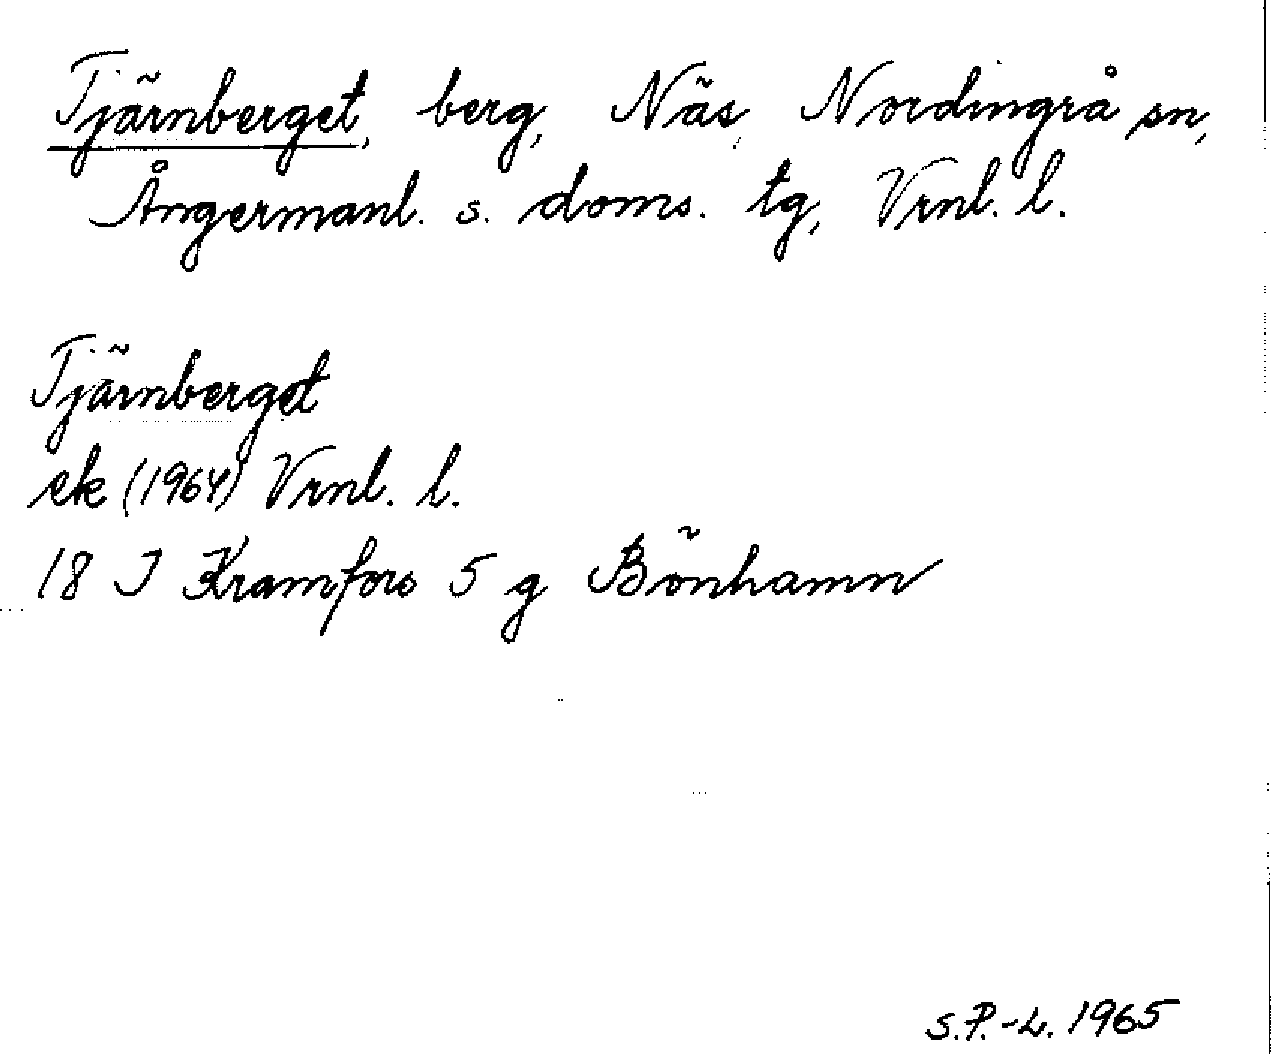 Tjärnberget, berg, Näs, Nordingrå sn,
Ångermanl. s. doms. tg, Vrnl. l.
Tjärnberget
ek (1964) Vrnl. l.
18 I Kramfors 5 g Bönhamn
S.P.-L. 1965